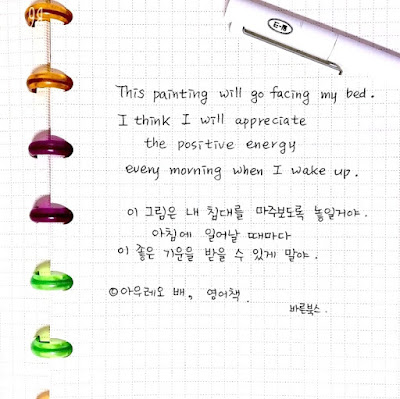 This painting will go facing my bed.
I think I will appreciate
the positive energy
every morning when I wake up.
이 그림은 내 침대를 마주보도록 놓일거야.
아침에 일어날 때마다
이 좋은 기운을 받을 수 있게 말야.
©아우레오 배, 영어책
바른북스